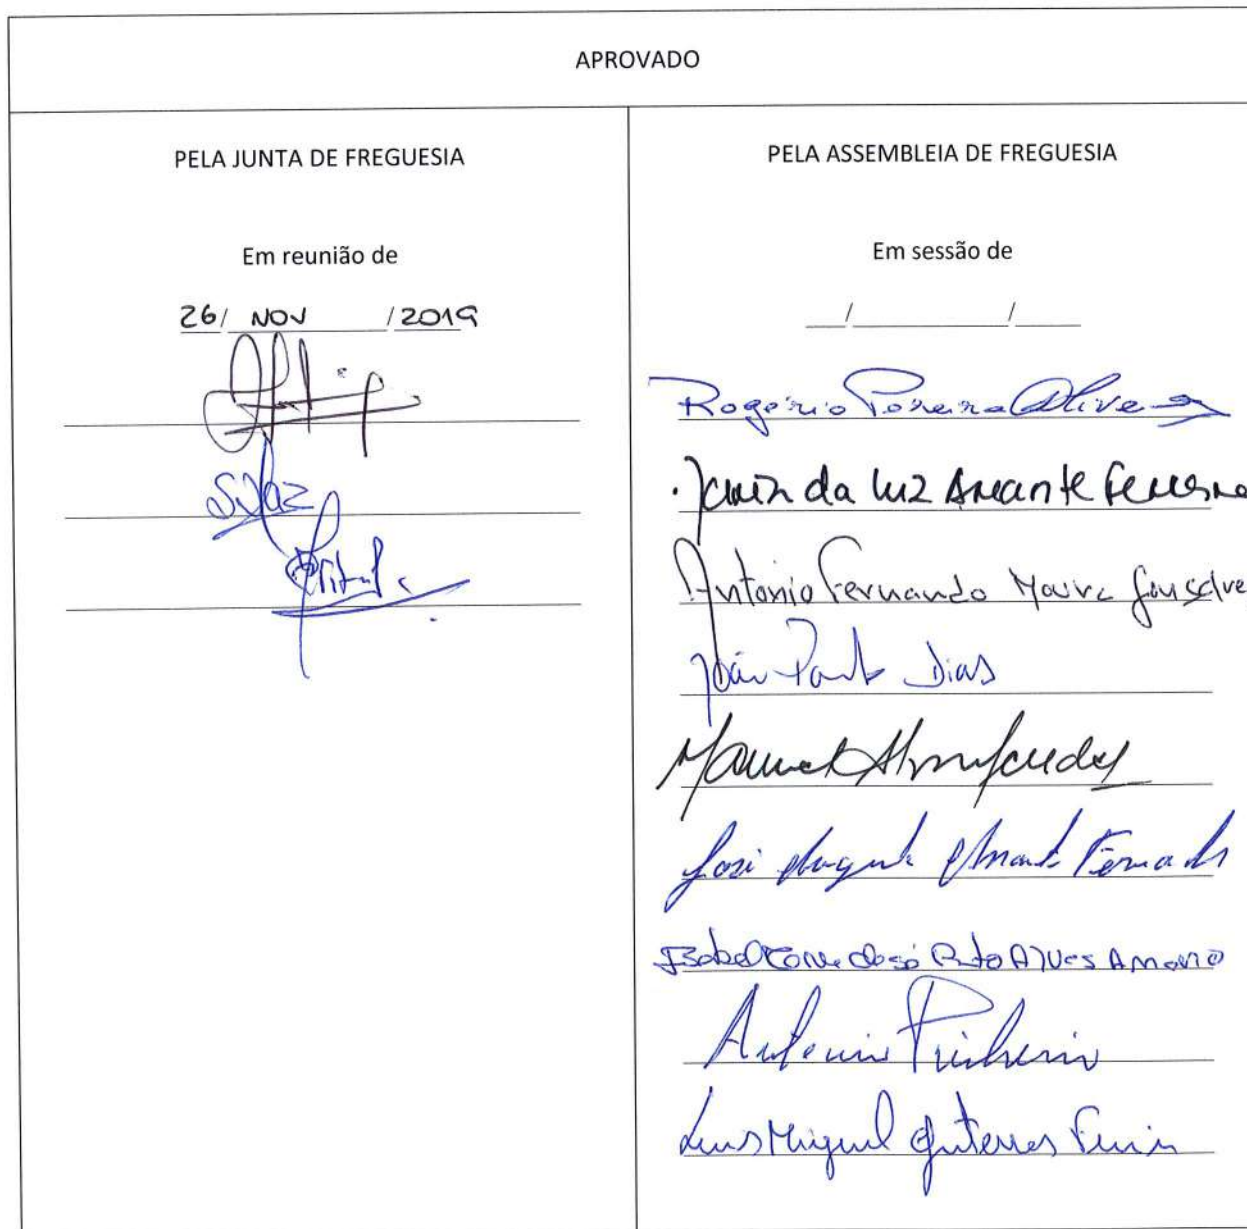 APROVADO
PELA JUNTA DE FREGUESIA
Em reunião de
26/ NOV /2019
SVaz
PELA ASSEMBLEIA DE FREGUESIA
Em sessão de
/ /
Rogério Pereira Olive
da Luz Amante Ferreira
António Fernando Moura Gonçalve
João Paulo Dias
Manuel
José Augusto Fernandes
Isabel Pinto Alves Amaro
António Pinheiro
Luis Miguel Guterres